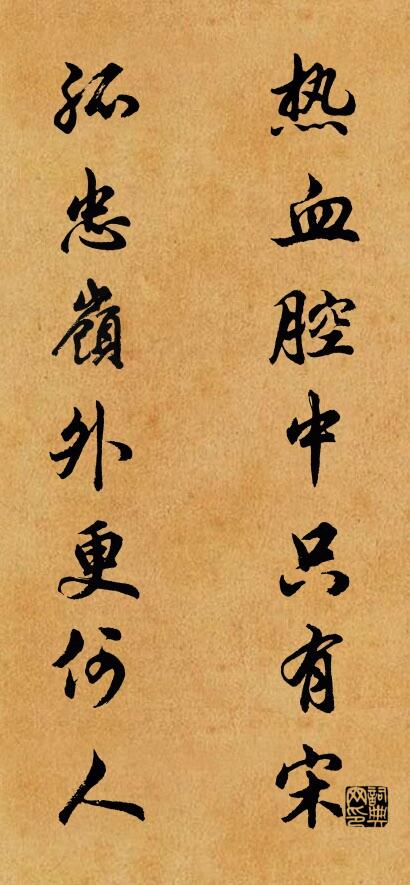 热血腔中只有宋
孤忠嶺外更何人
詞典网印